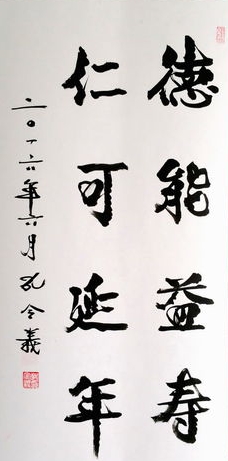 德能益寿
仁可延年
二〇一六年六月孔令義